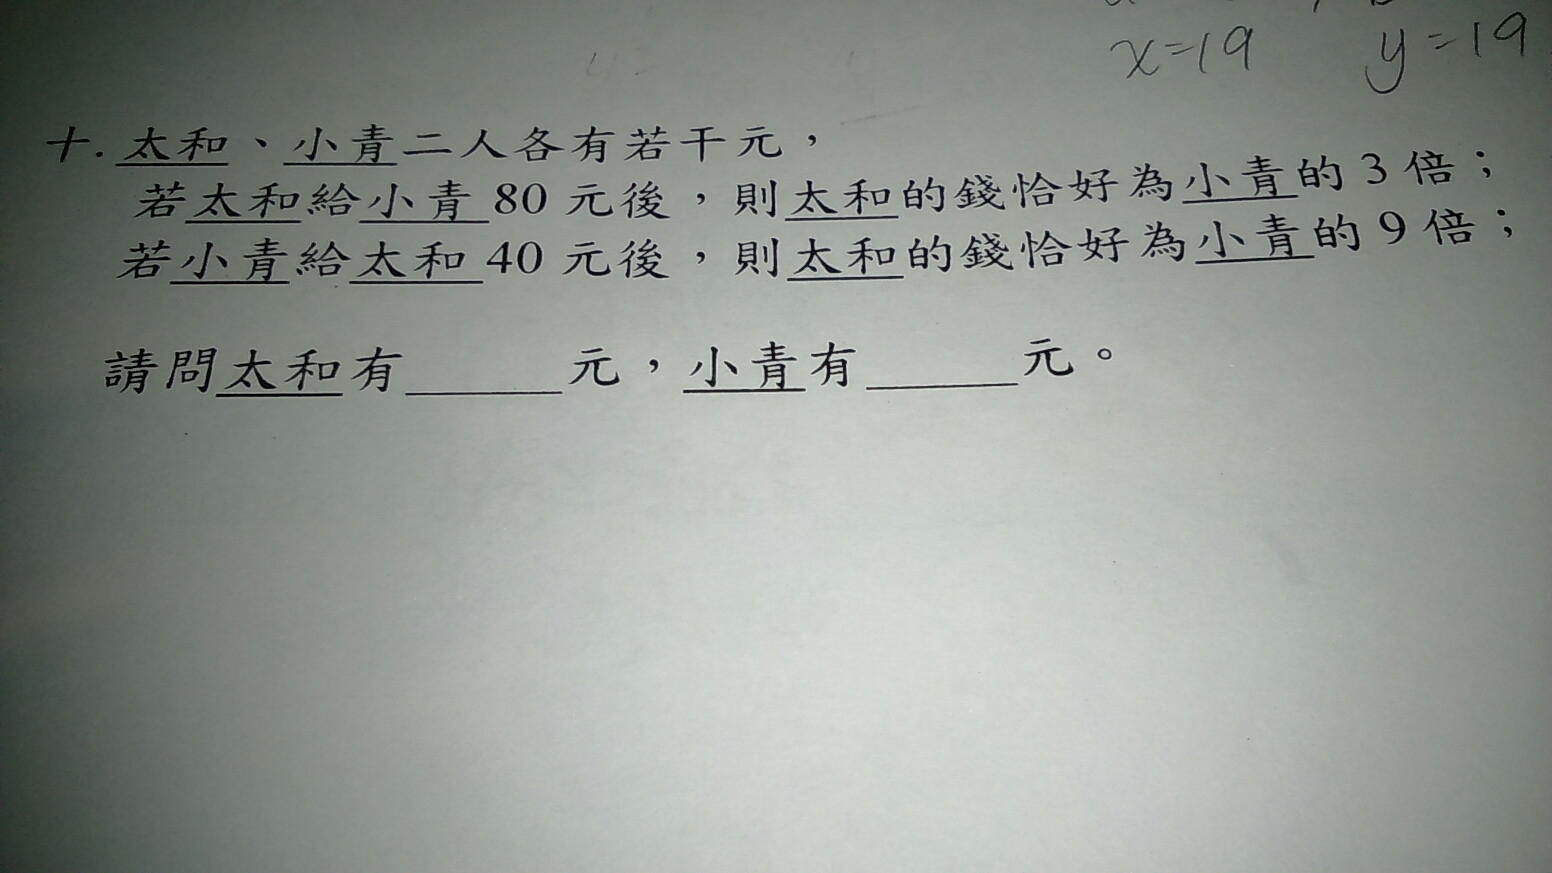 x=19 y=19
十.太和、小青二人各有若干元，
若太和給小青80元後，則太和的錢恰好為小青的3倍；
若小青給太和40元後，則太和的錢恰好為小青的9倍；
請問太和有______元，小青有______元。